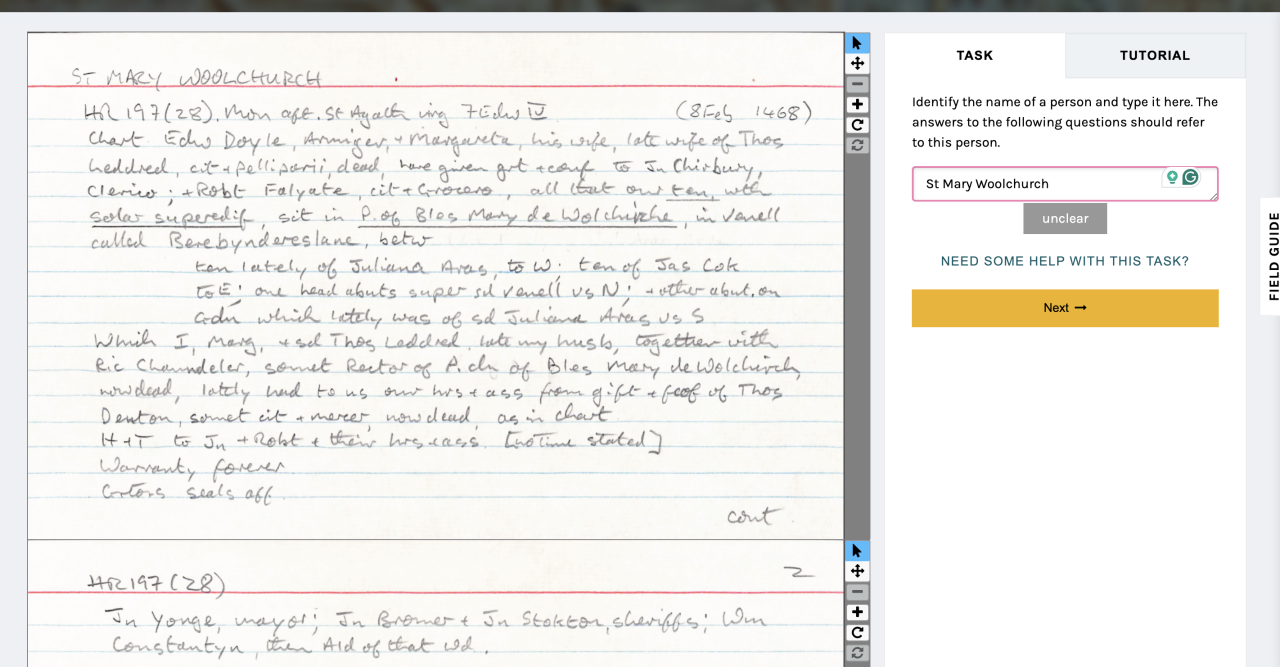 ST MARY WOOLCHURCH
HR 197(28). Mon aft. St Agath virg 7 Edw IV (8 Feb 1468)
Chart Edw Doyle, Armiger, + Margareta, his wife, late wife of Thos
Leddred, cit + pelliparii, dead, have given grt + conf to Jn Chirbury,
Clerico; + Robt Falyate, cit + Grocero, all that our ten, wth
solar superedif, sit in P. of Bles Mary de Wolchirche, in venell
called Berebyndereslane, betw
ten lately of Juliana Aras, to W; ten of Jas Cok
to E; one head abuts super sd venell vs N; + other abut. on
Gdn which lately was of sd Juliana Aras vs S
Which I, Marg, + sd Thos Leddred, late my husb, together with
Ric Chaundeler, somet Rector of P. ch of Bles Mary de Wolchirch,
now dead, lately had to us our hrs + ass from gift + feof of Thos
Denton, somet cit + mercer, now dead, as in chart
H + T to Jn + Robt + their hrs + ass. [no Time stated]
Warranty forever.
Grtors seals aff.
cont.
HR 197 (28) 2
Jn Yonge, mayor; Jn Bromer + Jn Stokton, sheriffs; Wm
Constantyn, then Ald of that Wd.
TASK
TUTORIAL
Identify the name of a person and type it here. The
answers to the following questions should refer
to this person.
St Mary Woolchurch
unclear
NEED SOME HELP WITH THIS TASK?
Next →
FIELD GUIDE